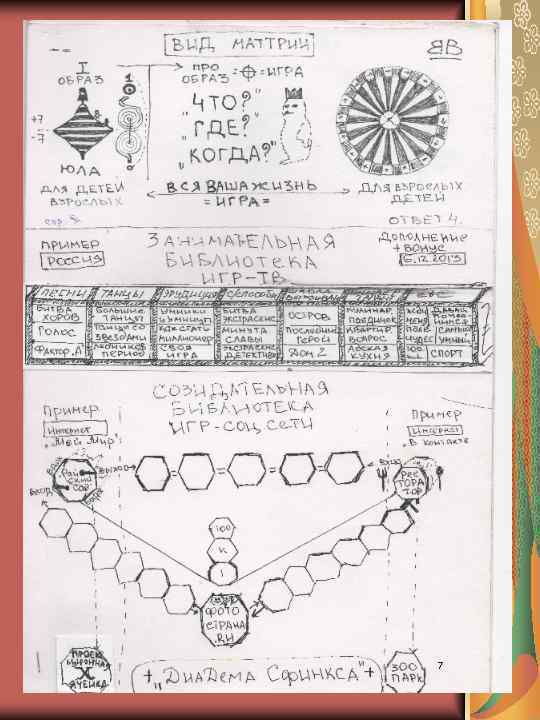 ВИД МАТТРИЦ
ЯВ
I
ОБРАЗ
ПРО
ОБРАЗ = = ИГРА
+7
-7
"ЧТО?"
"ГДЕ?"
"КОГДА?"
ЮЛА
ДЛЯ ДЕТЕЙ
ВЗРОСЛЫХ
ВСЯ ВАША ЖИЗНЬ
= ИГРА =
ДЛЯ ВЗРОСЛЫХ
ДЕТЕЙ
ОТВЕТ 4.
ПРИМЕР
РОССИЯ
ЗАНИМАТЕЛЬНАЯ
БИБЛИОТЕКА
ИГР-ТВ
ДОПОЛНЕНИЕ
+ БОНУС
6.12.2013
ПЕСНИ
БИТВА
ХОРОВ
ГОЛОС
ФАКТОР.А
ТАНЦЫ
БОЛЬШИЕ
ТАНЦЫ
ТАНЦЫ СО
ЗВЕЗДАМИ
ЛЕДНИКОВ.
ПЕРИОД
ЭРУДИЦИЯ
УМНИКИ
И УМНИЦЫ
КАК СТАТЬ
МИЛЛИОНЕР
СВОЯ
ИГРА
С/СПОСОБН
БИТВА
ЭКСТРАСЕНС
МИНУТА
СЛАВЫ
ЭКСТРАСЕНС
ДЕТЕКТИВЫ
ОСТРОВ
ПОСЛЕДНИЙ
ГЕРОЙ
ДОМ 2
КУЛИНАР.
ПОЕДИНОК
КВАРТИР
ВОПРОС
АДСКАЯ
КУХНЯ
ПОЛЕ
ЧУДЕС
САМЫЙ
УМНЫЙ
СПОРТ
СОЗИДАТЕЛЬНАЯ
БИБЛИОТЕКА
ИГР-СОЦ СЕТИ
ПРИМЕР
ИНТЕРНЕТ
"Мой Мир"
ПРИМЕР
ИНТЕРНЕТ
"В контакте"
ВХОД
ВЫХОД
РАЙ
СКИЙ
САД
ВХОД
РЕС
ТОРА
ТОР
100
К
1
ФОТО
СТРАНА
.RU
ПРОЕК
Х
ЯЧЕЙКА
+ "ДИАДЕМА СФИНКСА" +
300
ПАРК
7